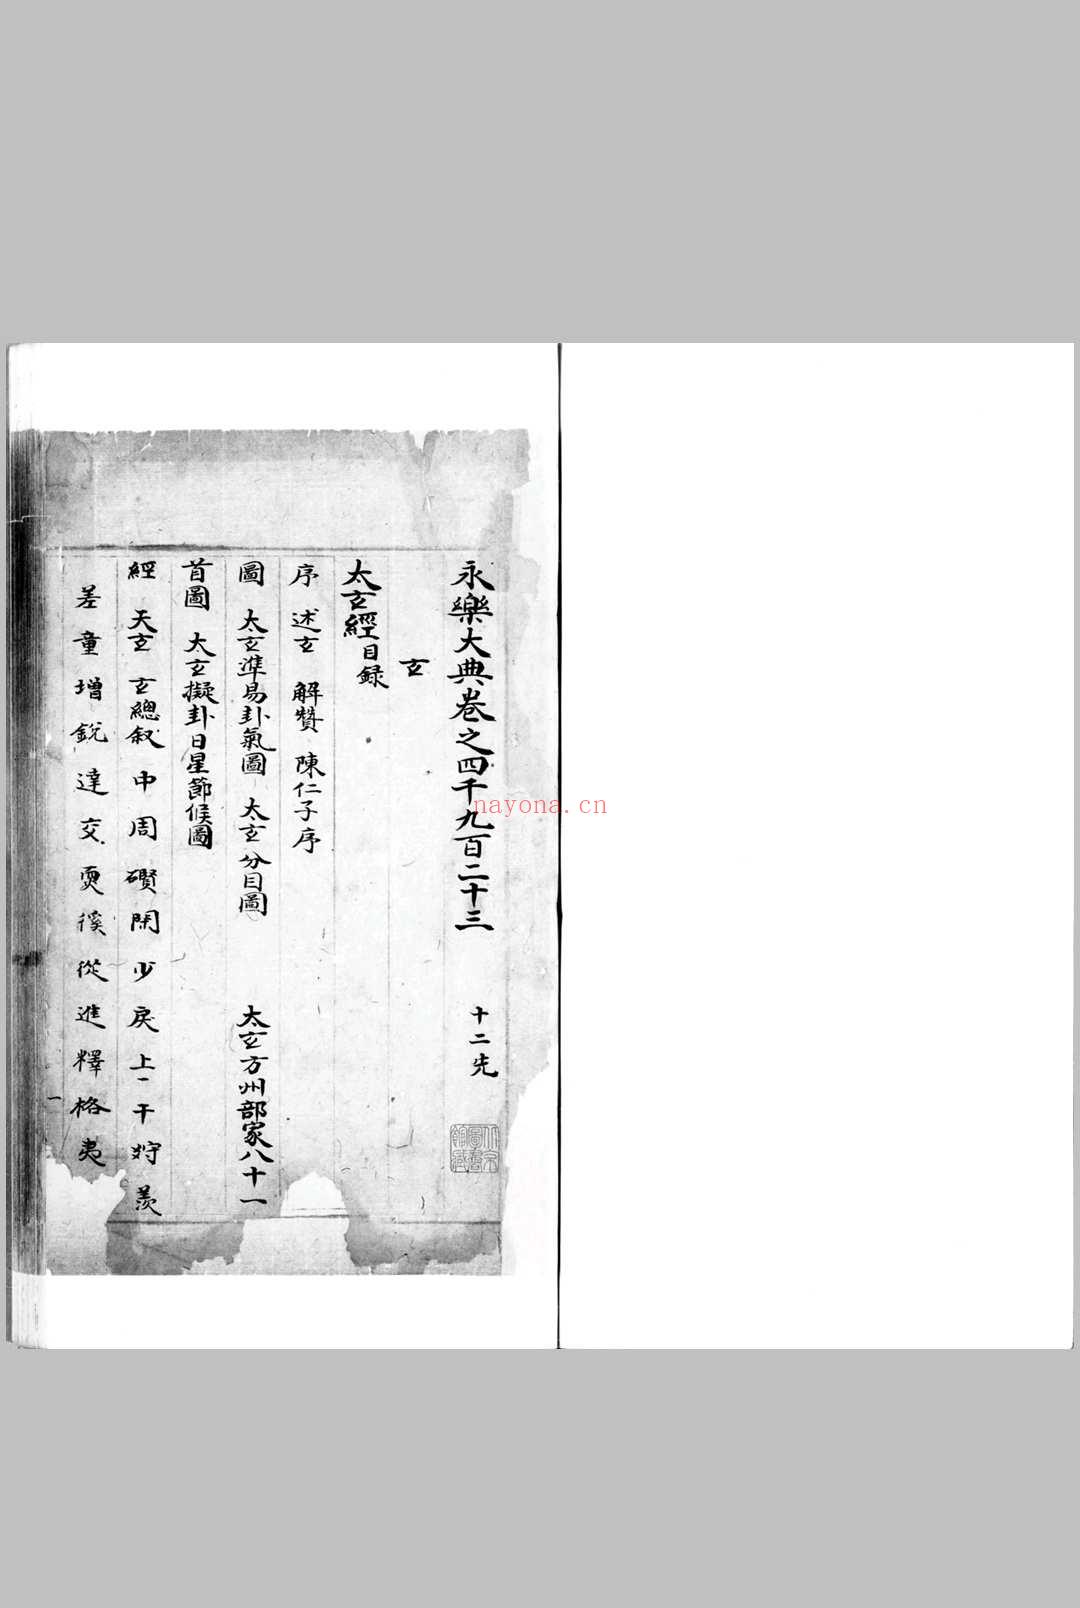 永樂大典卷之四千九百二十三 十二先
玄
太玄經目録
序 述玄 解贊 陳仁子序
圖 太玄準易卦氣圖 太玄分目圖 太玄方州部家八十一
首圖 太玄擬卦日星節候圖
經 天玄 玄總叙 中 周 礥 閑 少 戾 上 干 狩 羨
差 童 增 銳 達 交 耎 徯 從 進 釋 格 夷
一
nayona.cn